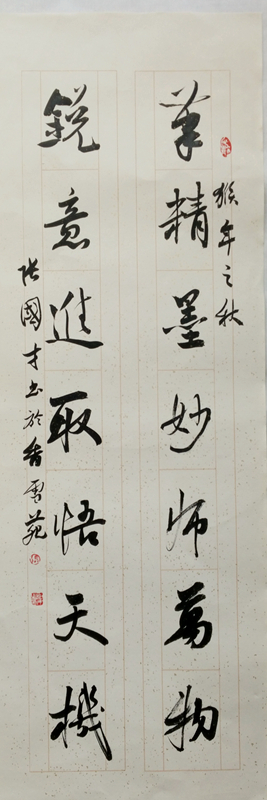 猴年之秋
筆精墨妙师萬物
銳意進取悟天機
张國才书於香雪苑